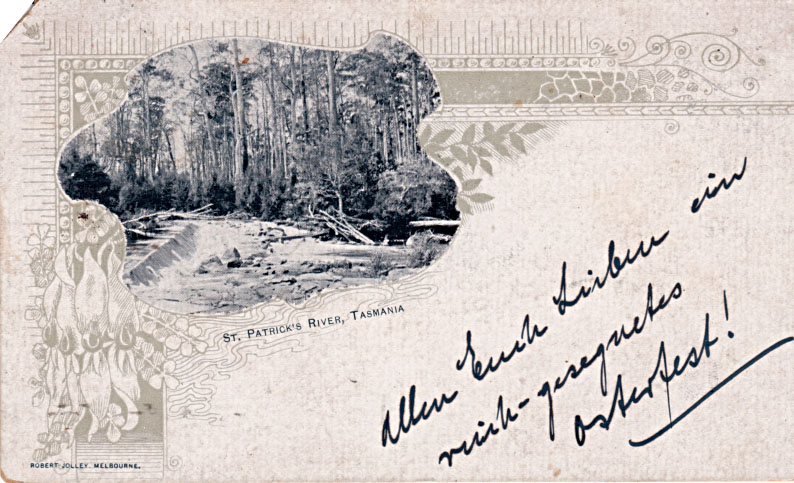 St. Patrick's River, Tasmania
Allen Euch Lieben ein
reich-gesegnetes
Osterfest!
Robert Jolley Melbourne.